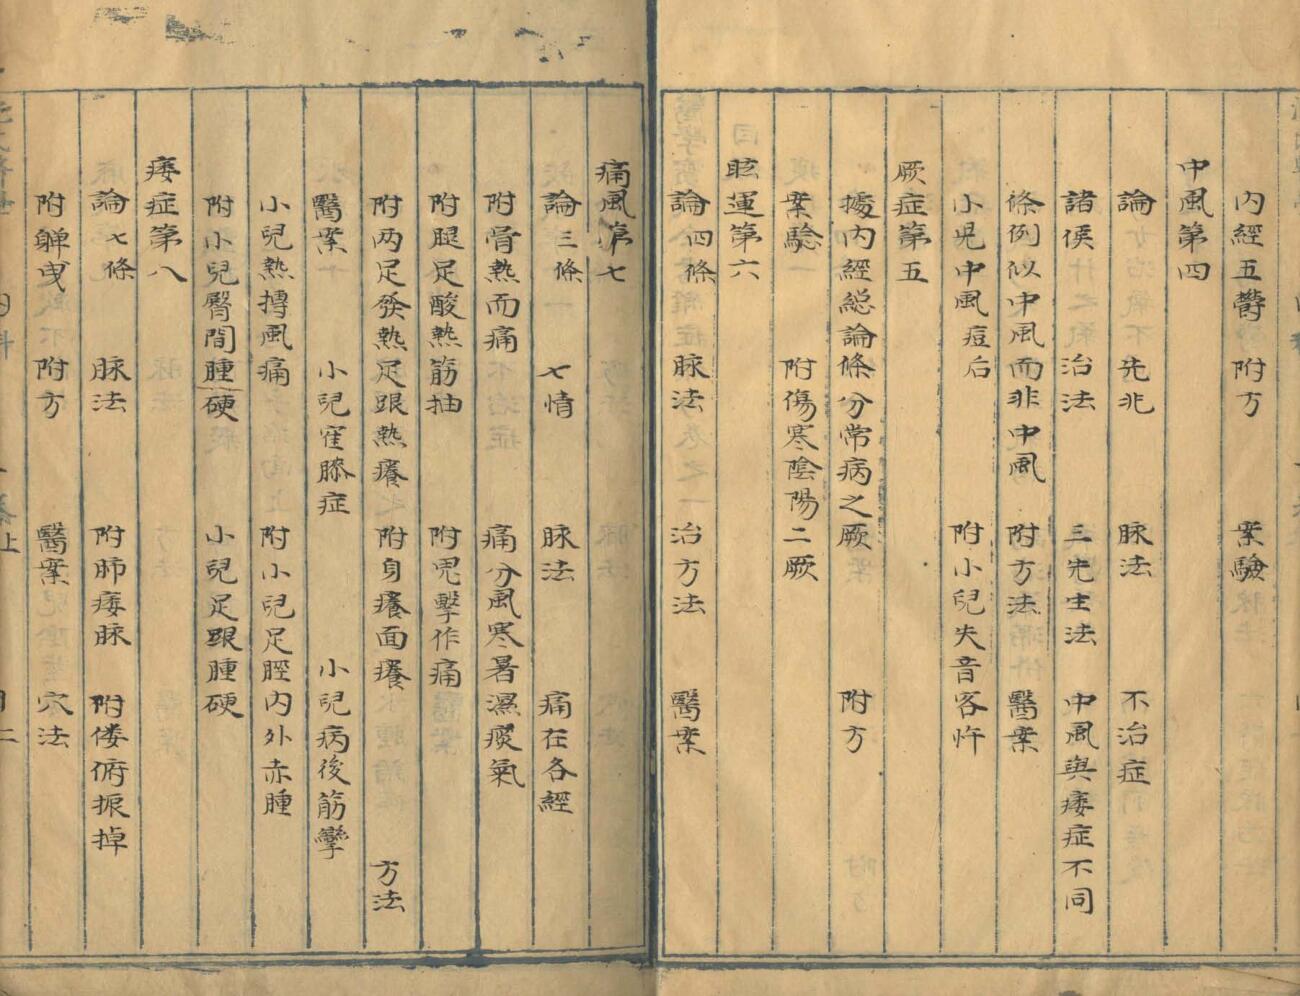 內經五欝 附方 案驗
中風第四
論 先兆 脉法 不治症
諸侯 治法 三先生法 中風與痿症不同
條例似中風而非中風 附方法 醫案
小児中風痘后 附小兒失音客忤
厥症第五
擾内經総論條分常病之厥 附方
案驗 附傷寒陰陽二厥
眩運第六
論四條 脉法 治方法 醫案
痛風第七
論三條 七情 脉法 痛在各經
附骨熱而痛 痛分風寒暑濕痰氣
附腿足酸熱筋抽 附鬼擊作痛
附两足發熱足跟熱癢 附身癢面癢 方法
醫案 小兒寉膝症 小兒病後筋攣
小兒熱摶風痛 附小兒足脛内外赤腫
附小兒臀間腫硬 小兒足跟腫硬
痿症第八
論七條 脉法 附肺痿脉 附倭俯振掉
附軃曳 附方 醫案 穴法